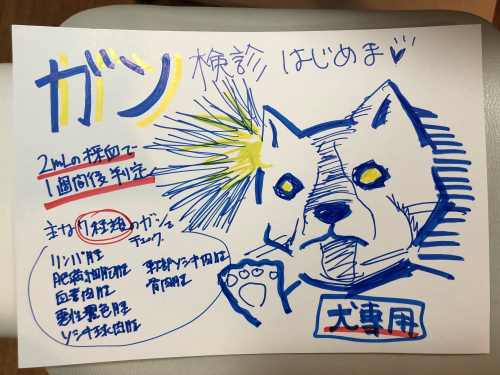 ガン検診 はじめま
2mLの採血で
1週間後判定
主な7種類のガンを
チェック
リンパ腫
肥満細胞腫
血管肉腫
悪性黒色腫
ソシキ球肉腫
軟部ソシキ肉腫
骨肉腫
犬専用